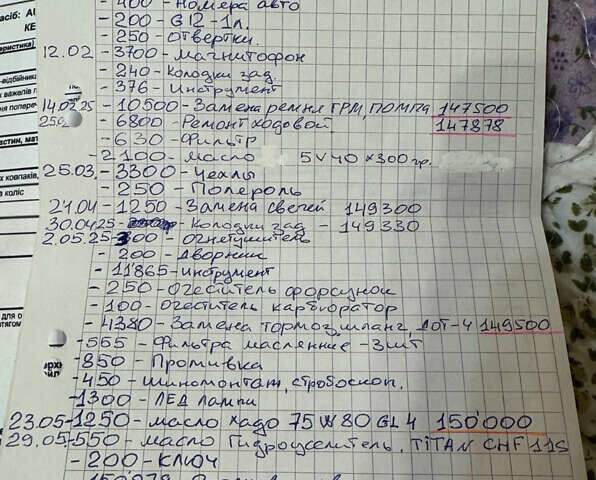 - 400 - Номера авто
- 200 - G12 - 1л.
- 250 - Отвертки.
12.02 - 3700 - Магнитофон
- 240 - Колодки зад.
- 376 - Инструмент
14.02.25 - 10500 - Замена ремня ГРМ, ПОМПА 147500
- 6800 - Ремонт ходовой 147878
- 630 - Фильтр
- 2100 - масло 5W40 x 300 гр.
25.03. - 3300 - Чехлы
- 250 - Полероль
21.04 - 1250 - Замена свечей 149300
30.04.25 - Колодки зад - 149330
2.05.25 300 - Огнетушитель
- 200 - Дворник
- 11865 - Инструмент
- 250 - Очеститель форсунок
- 100 - Очеститель карбюратор
- 4380 - Замена тормоз, шланг, ДОТ-4 149500
- 565 - Фильтра масленние - 3шт
- 850 - Промивка
- 450 - шиномонтаж, стробоскоп.
- 1300 - ЛЕД лампи
23.05 - 1250 - масло хадо 75W80 GL4 150'000
29.05 - 550 - масло Гидроуселитель. TiTAN CHF 11S
- 200 - КЛЮЧ